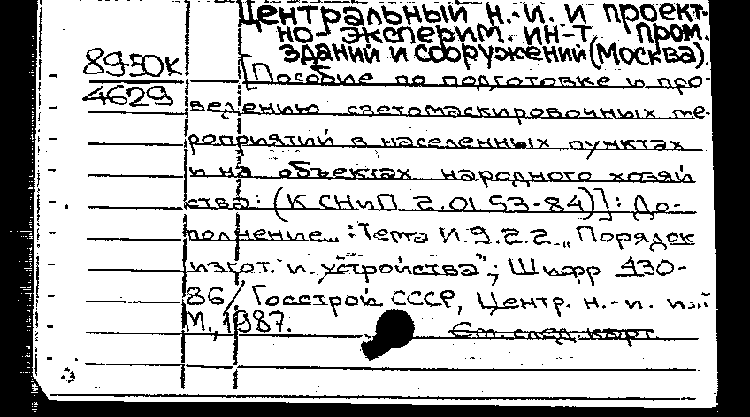 Центральный н.-и. и проект-
но-эксперим. ин-т пром.
зданий и сооружений (Москва).
8950К
4629
[Пособие по подготовке и про-
ведению светомаскировочных ме-
роприятий в населенных пунктах
и на объектах народного хозяй
ства: (К СНиП 2.01.53-84)]: До-
полнение... : Тема И.9.2.2. „Порядок
изгот. и устройства"; Шифр 430-
86 / Госстрой СССР, Центр. н.-и. и
М., 1987.
См. след. карт.